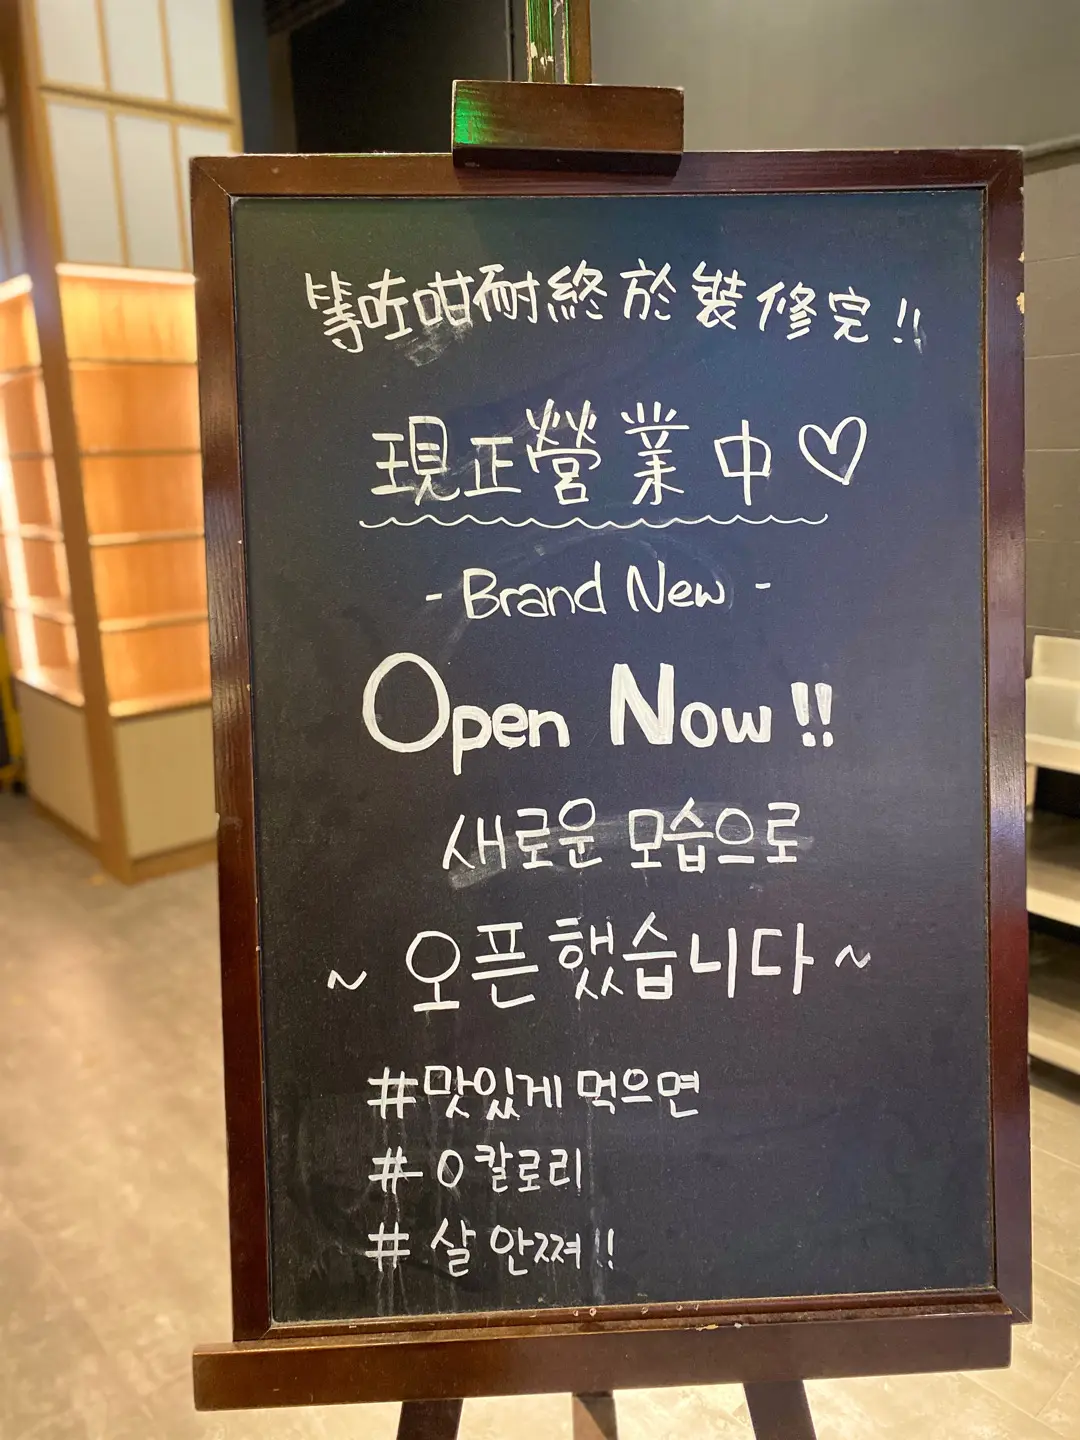 等咗咁耐終於裝修完!!
現正營業中♡
- Brand New -
Open Now!!
새로운 모습으로
~ 오픈했습니다 ~
#맛있게 먹으면
# 0칼로리
# 살 안쪄!!